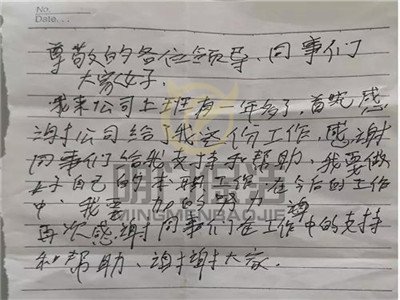 No.
Date...
尊敬的各位领导、同事们
大家好.
我来公司上班有一年多了,首先感
谢公司给了我这份工作,感谢
同事们给我支持和帮助、我要做
好自己的本职工作,在今后的工作
中,我要 加的努力
再次感谢同事们在工作中的支持
和帮助、谢谢大家.
MINGMENBAOJIE